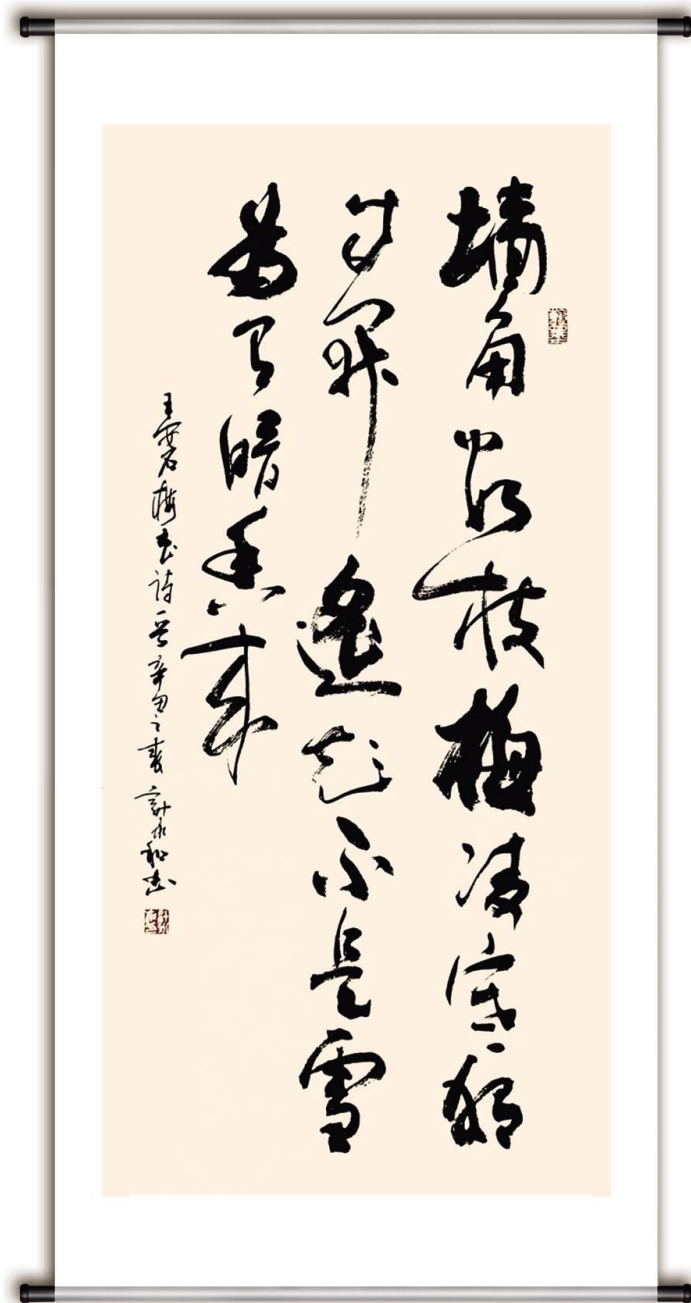 墙角数枝梅凌寒独
自开遥知不是雪
为有暗香来
王安石梅花诗一首辛丑之夏永和书